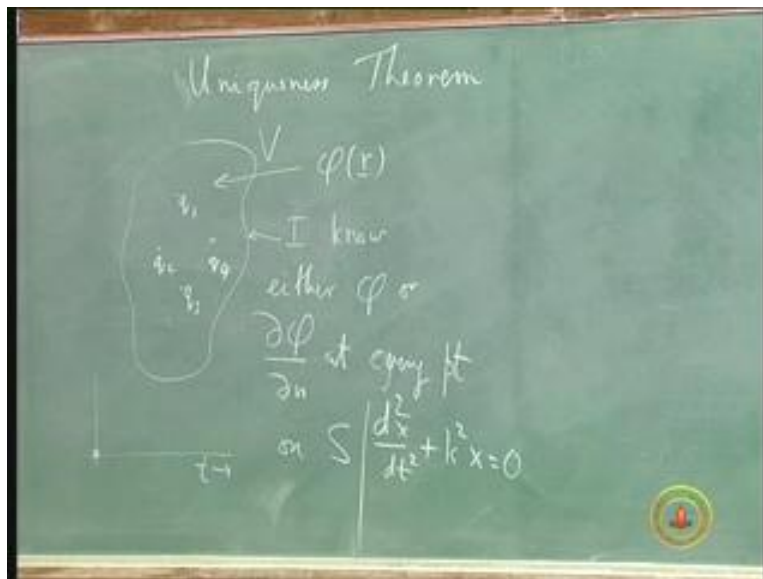 Uniqueness Theorem
V
φ(r)
q₁
I know
q₂ q₄
q₃
either φ or
∂φ/∂n at every pt
on S
d²x/dt² + k²x = 0
t→